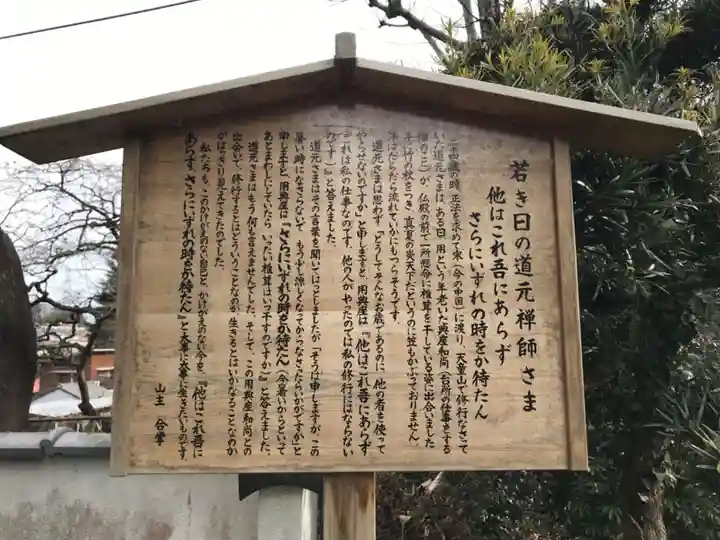 若き日の道元禅師さま
他はこれ吾にあらず
さらにいずれの時をか待たん
二十四歳の時、正法を求めて宋（今の中国）に渡り、天童山で修行なさって
いた道元さまは、ある日、用という年老いた典座和尚（台所の仕事をする
僧のこと）が、仏殿の前で一所懸命に椎茸を干している姿に出合いました
手に竹の杖をつき、真夏の炎天下だというのに笠もかぶっておりません。
汗はだらだら流れていかにもつらそうです。
道元さまは思わず「どうしてそんなお歳であるのに、他の者を使って
やらせないのですか」と申しますと、用典座は『他はこれ吾にあらず
（これは私の仕事なのです。他の人がやったのでは私の修行にはならない
のです）』と答えました。
道元さまはその言葉を聞いてはっとしましたが、「そうは申しますが、この
暑い時になさらないで、もう少し涼しくなってからなさったらいかがですか」と
申しますと、用典座は『さらにいずれの時をか待たん（今暑いからといって
あとまわしにしていたら、いったい椎茸はいつ干すのですか）』と答えました。
道元さまはもう何も言えませんでした。そして、この用典座和尚との
出合いで、修行するとはどういうことなのか、生きるとはいかなることなのか
がはっきり見えてきたのでした。
私たちも、このかけがえのない自己と、かけがえのない今を、『他はこれ吾に
あらず、さらにいずれの時をか待たん』と大事に大事に生きたいものです。
山主 合掌